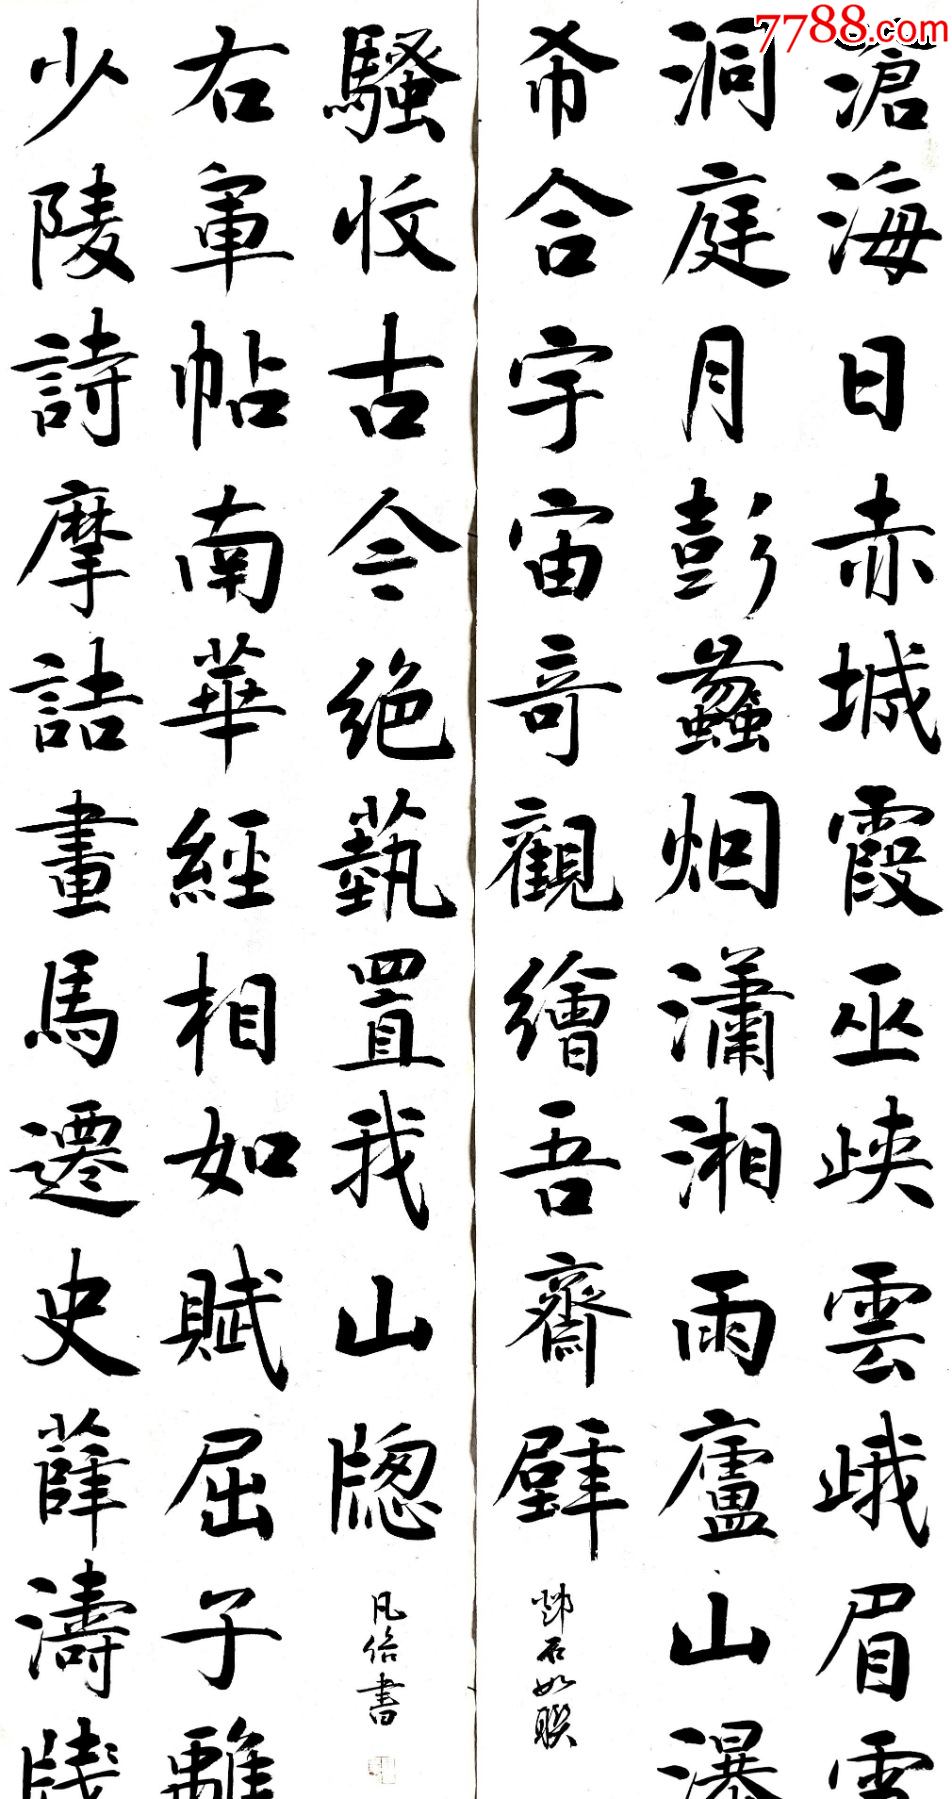 7788.com
滄海日赤城霞巫峽雲峨眉雪
洞庭月彭蠡烟瀟湘雨廬山瀑
布合宇宙奇觀繪吾齋壁
鄧石如聯
少陵詩摩詰畫馬遷史薛濤牋
右軍帖南華經相如賦屈子離
騷收古今絕藝置我山牕
凡 書